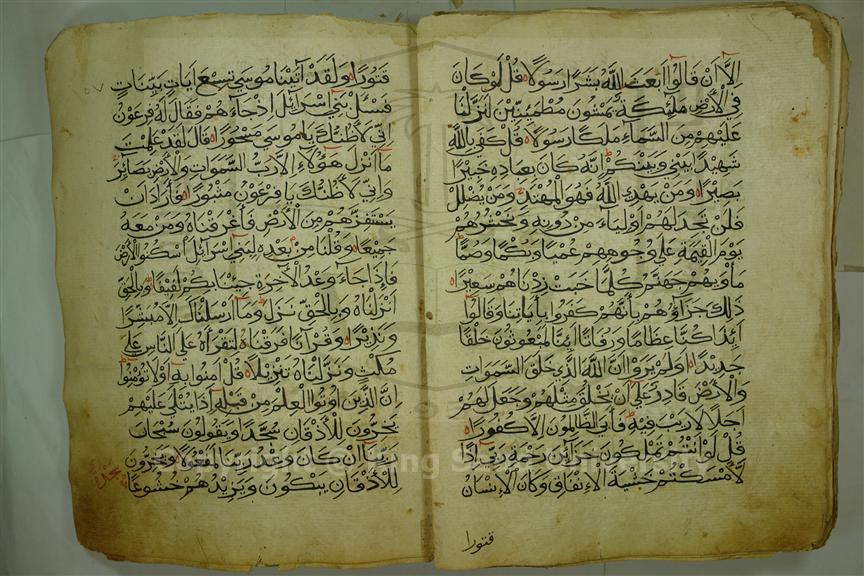 الا ان قالوا ابعث الله بشرا رسولا قل لو كان
في الارض ملئكة يمشون مطمئنين لنزلنا
عليهم من السماء ملكا رسولا قل كفى بالله
شهيدا بيني وبينكم انه كان بعباده خبيرا
بصيرا ومن يهد الله فهو المهتد ومن يضلل
فلن تجد لهم اولياء من دونه ونحشرهم
يوم القيمة على وجوههم عميا وبكما وصما
مأويهم جهنم كلما خبت زدناهم سعيرا
ذلك جزاؤهم بانهم كفروا باياتنا وقالوا
ائذا كنا عظاما ورفاتا ائنا لمبعوثون خلقا
جديدا اولم يروا ان الله الذي خلق السموات
والارض قادر على ان يخلق مثلهم وجعل لهم
اجلا لا ريب فيه فابى الظالمون الا كفورا
قل لو انتم تملكون خزائن رحمة ربي اذا
لامسكتم خشية الانفاق وكان الانسان
قتورا
قتورا ولقد آتينا موسى تسع ايات بينات
فسئل بني اسرائيل اذ جاءهم فقال له فرعون
اني لاظنك يا موسى مسحورا قال لقد علمت
ما انزل هؤلاء الا رب السموات والارض بصائر
واني لاظنك يا فرعون مثبورا فاراد ان
يستفزهم من الارض فاغرقناه ومن معه
جميعا وقلنا من بعده لبني اسرائيل اسكنوا الارض
فاذا جاء وعد الآخرة جئنا بكم لفيفا وبالحق
انزلناه وبالحق نزل وما ارسلناك الا مبشرا
ونذيرا وقرآنا فرقناه لتقراه على الناس على
مكث ونزلناه تنزيلا قل امنوا به اولا تؤمنوا
ان الذين اوتوا العلم من قبله اذا يتلى عليهم
يخرون للاذقان سجدا ويقولون سبحان
ربنا ان كان وعد ربنا لمفعولا ويخرون
للاذقان يبكون ويزيدهم خشوعا